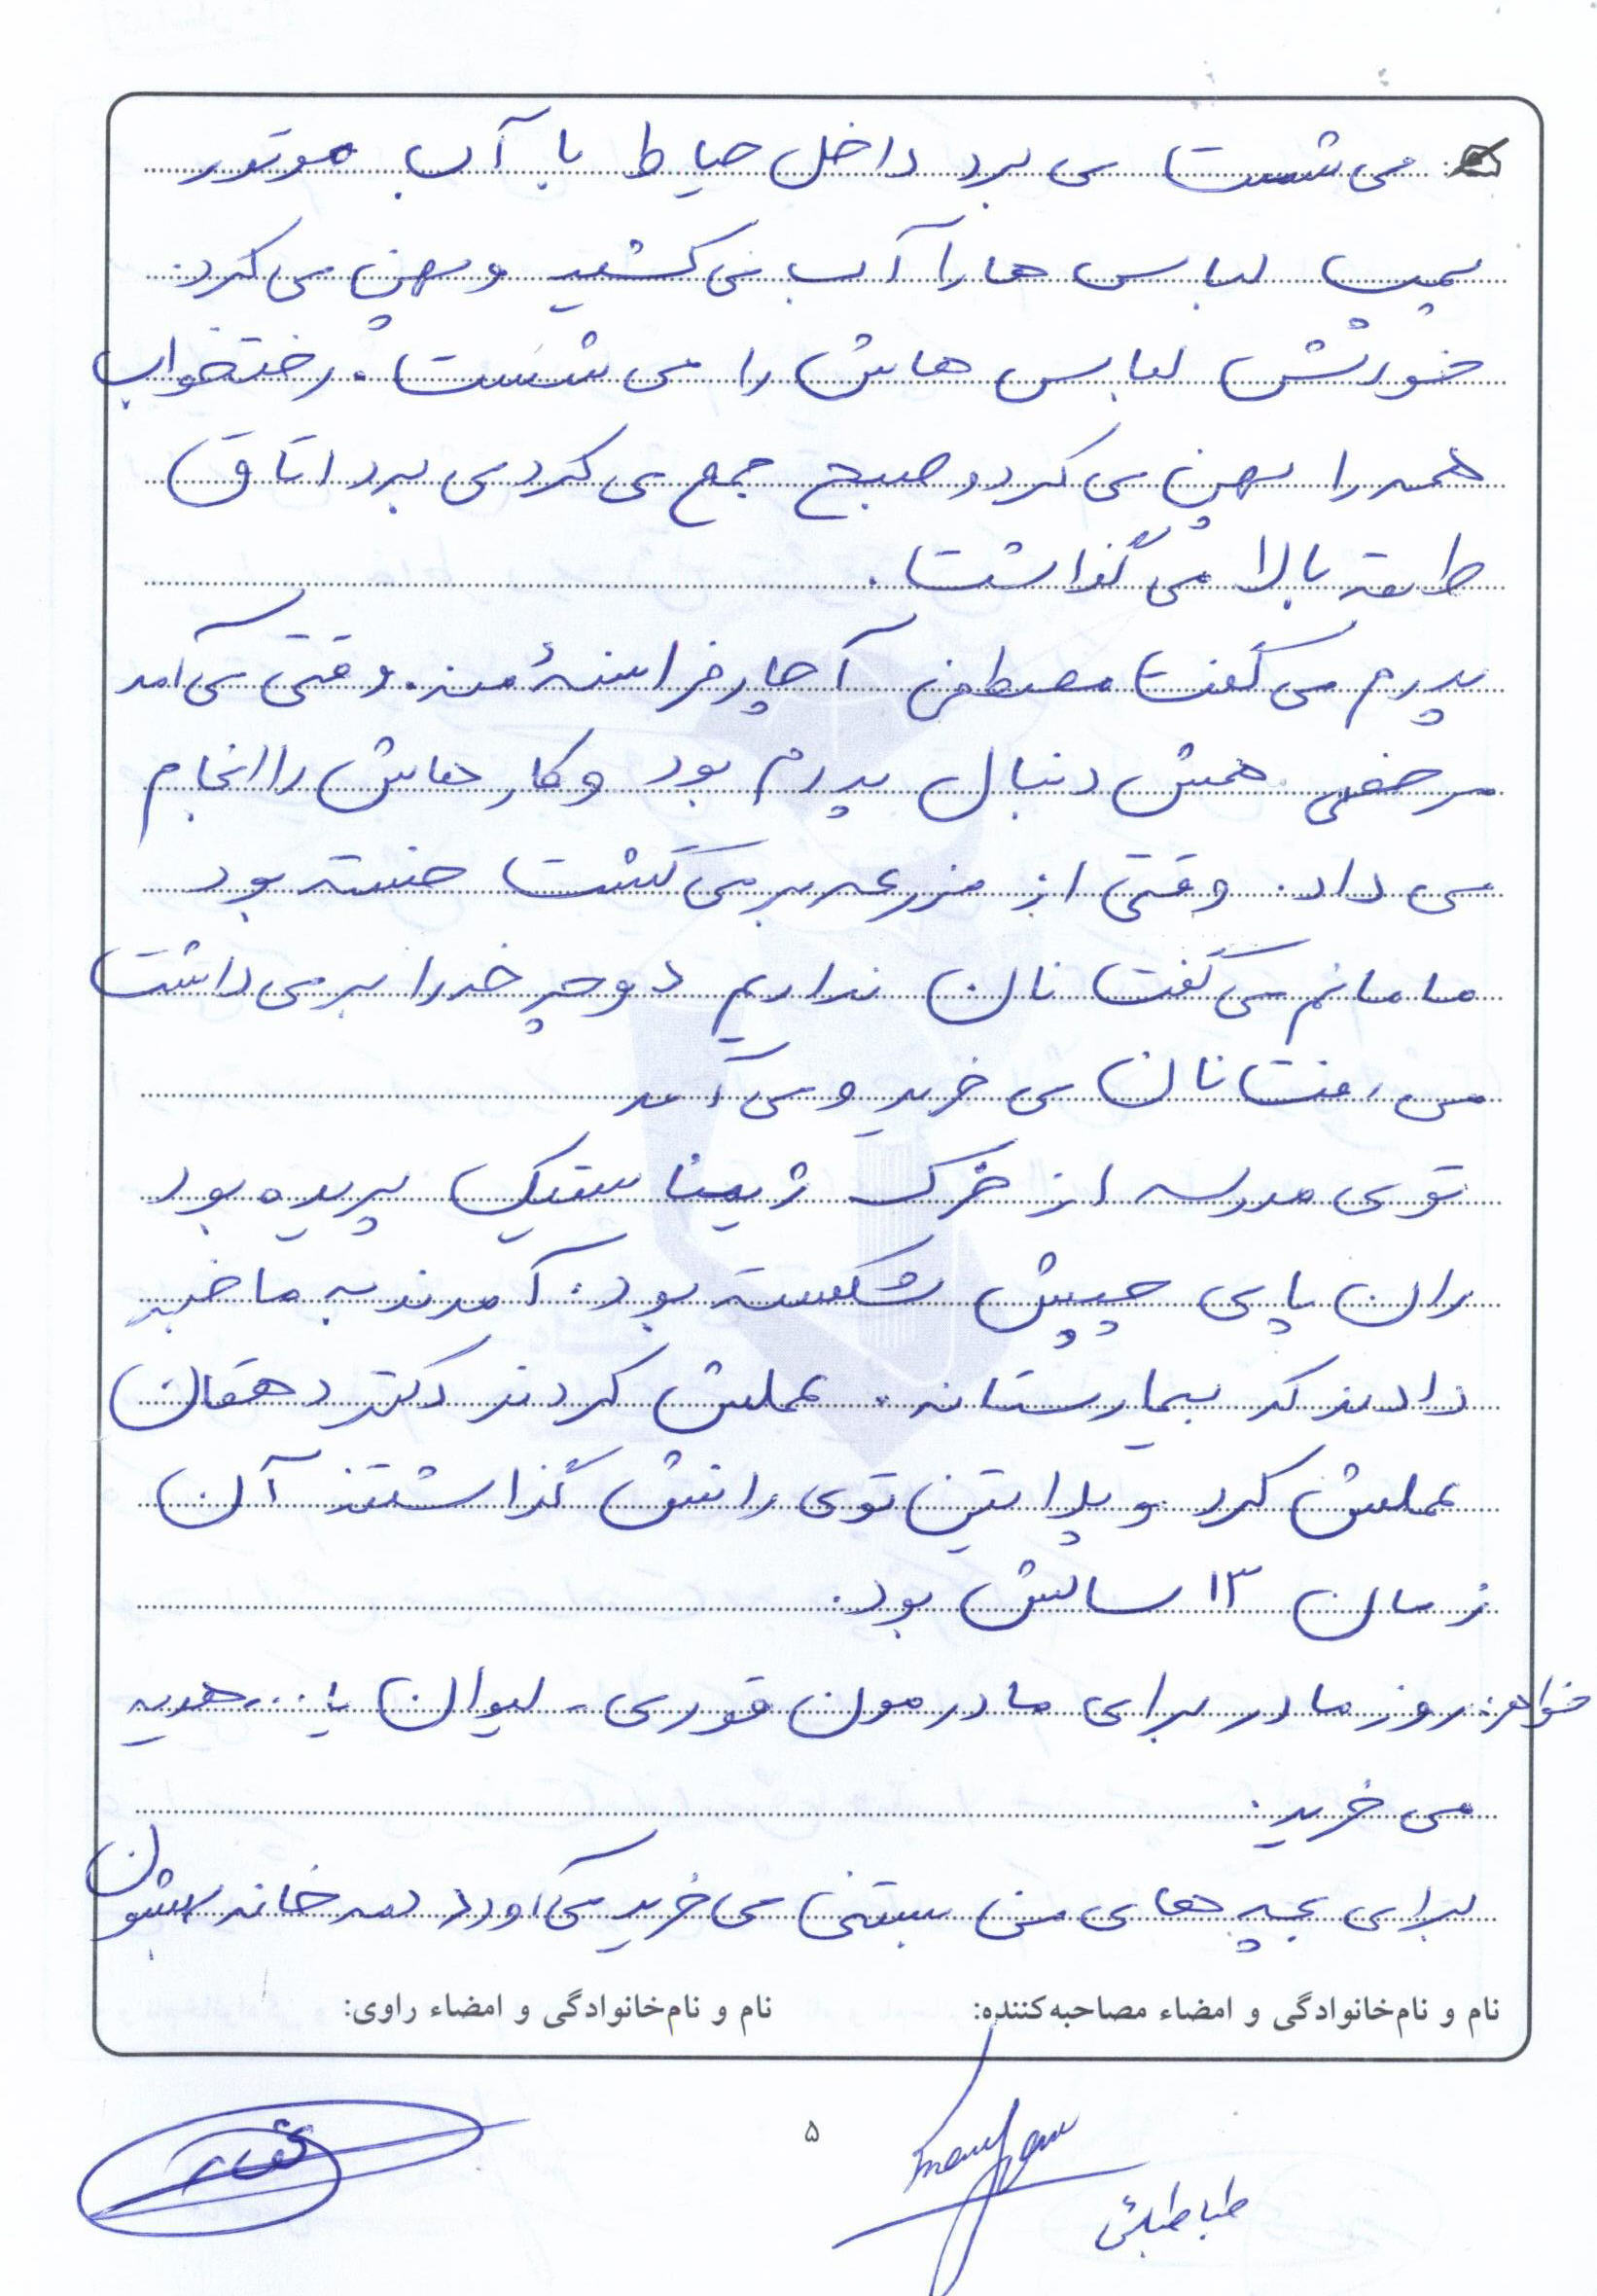 می شست می برد داخل حیاط با آب موتور
پمپ لباس ها را آب می کشید و پهن می کرد.
خودش لباس هاش را می شست. رختخواب
همه را پهن می کرد و صبح جمع می کرد می برد اتاق
طبقه بالا می گذاشت.
پدرم می گفت مصطفی آچار فرانسهٔ منه. وقتی می آمد
مرخصی همش دنبال پدرم بود و کارهاش را انجام
می داد. وقتی از مزرعه برمی گشت خسته بود
مامانم می گفت نان نداریم دوچرخه را برمی داشت
می رفت نان می خرید و می آمد
توی مدرسه از خرک ژیمناستیک پریده بود
ران پای چپش شکسته بود. آمدند به ما خبر
دادند که بیمارستانه. عملش کردند دکتر دهقان
عملش کرد و پلاتین توی رانش گذاشتند آن
زمان ۱۳ سالش بود.
خواهر: روز مادر برای مادرمون قوری - لیوان یا ... هدیه
می خرید.
برای بچه های من بستنی می خرید می آورد دمه خانه بهشون
نام و نام‌خانوادگی و امضاء مصاحبه‌کننده: نام و نام‌خانوادگی و امضاء راوی:
۵
طباطبائی